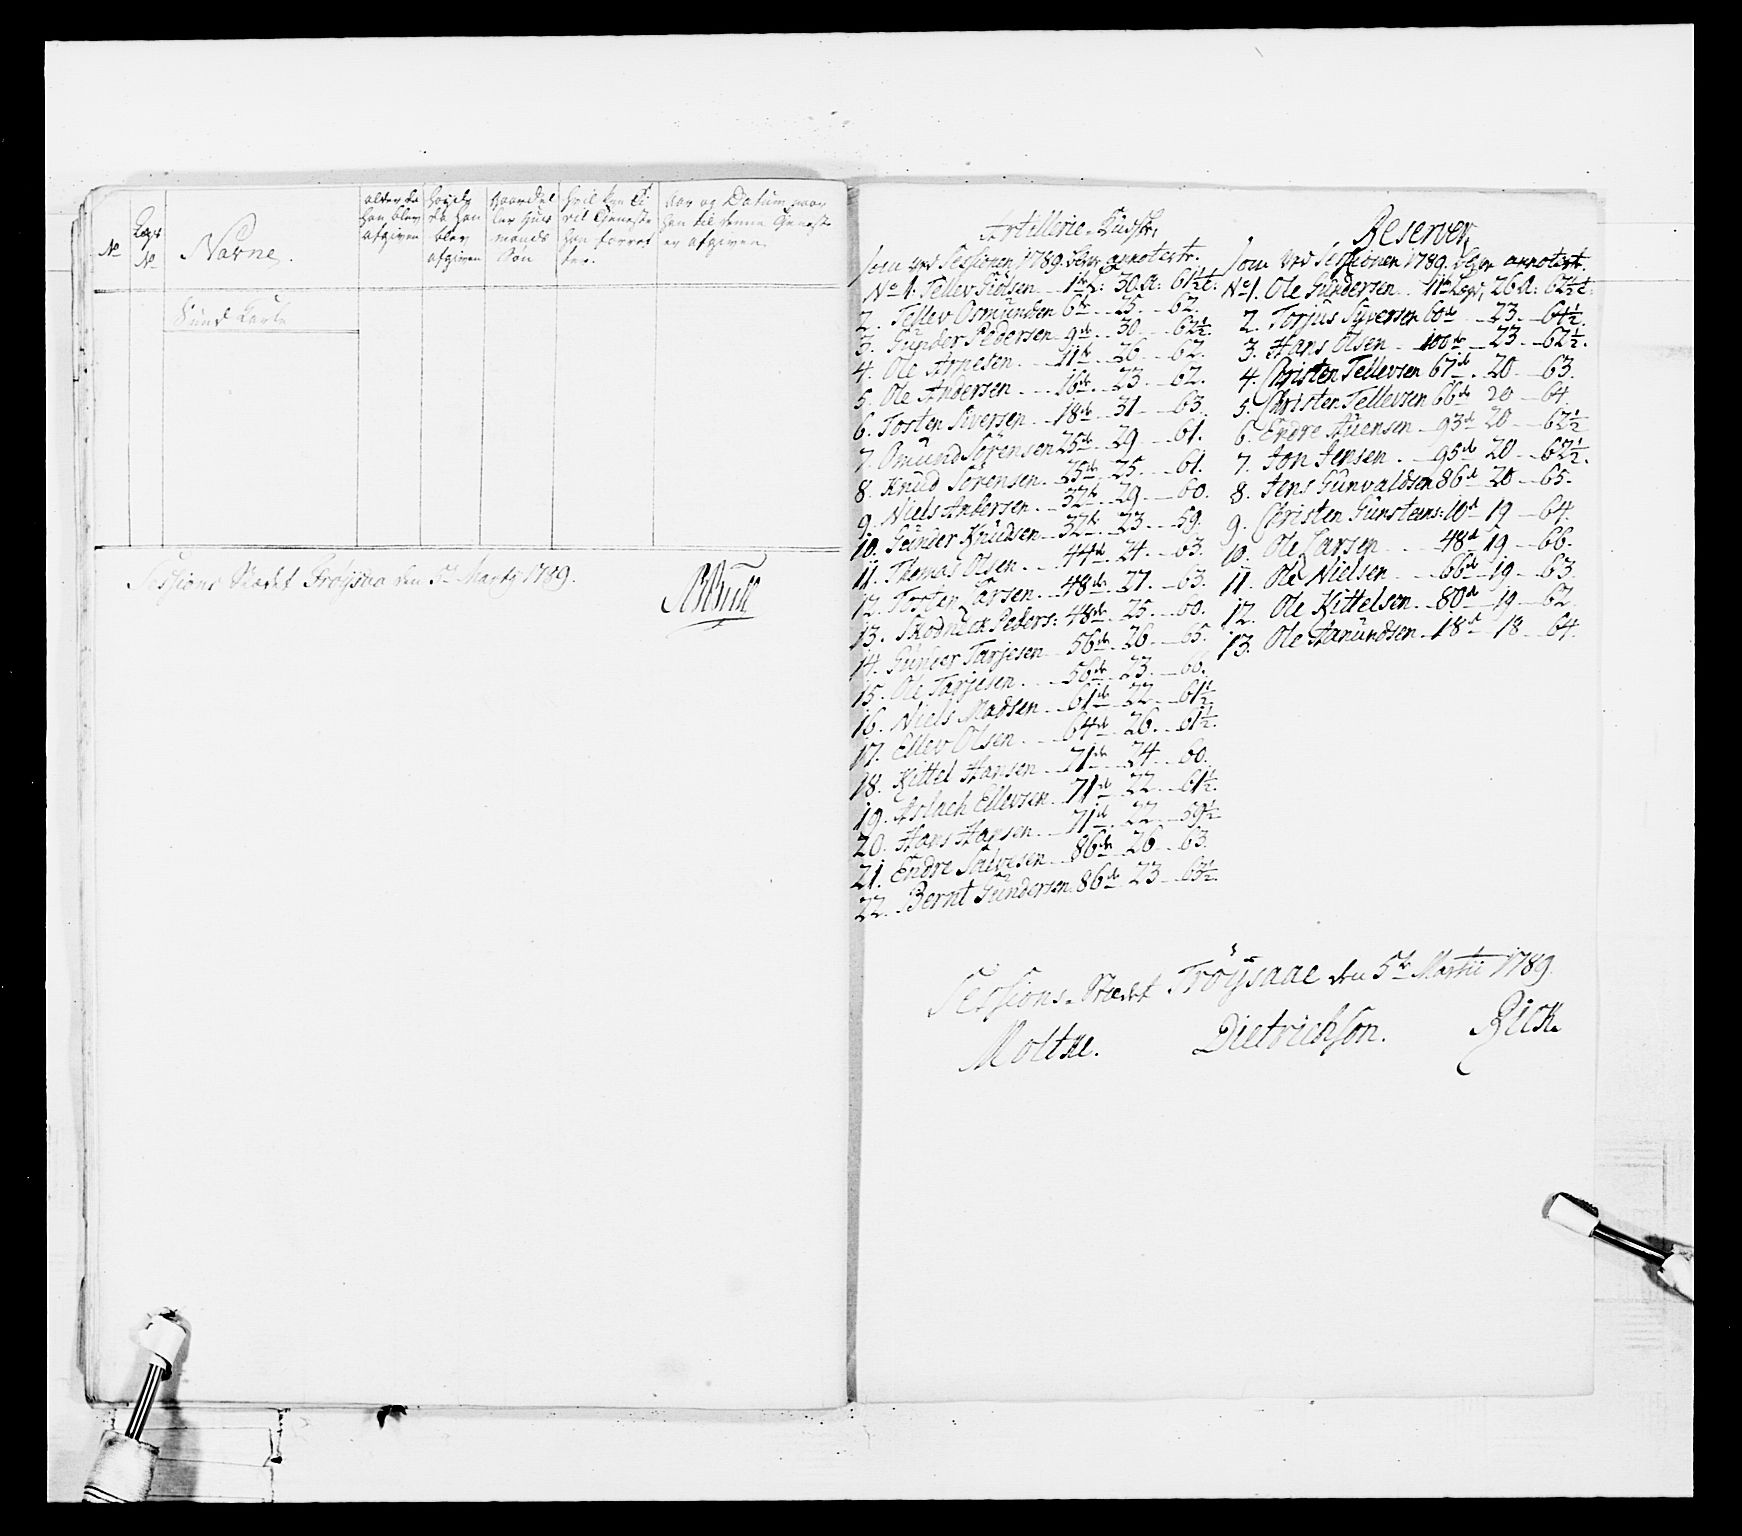 No
Lægs No
Navne.
alder da han blev afgiven
høyde da han blev afgiven
Søn
hvilken
han forret
Aar og Datum naar
han til denne Tjeneste
er afgiven.
Sessions Stædet Trøysaa den 5te Marty 1789.
Artillerie Kudske,
som ved Sessionen 1789 blev annoterte.
No 1. Tellev 1te L: 30 A: 61½ t:
2. Tellev Osmunden 6te 25 62.
3. Gunder Pedersen 9de 30 62½.
4. Ole Arnesen 11te 26 62.
5. Ole Andersen 16de 23 62.
6. Tosten Siversen 18de 31 63.
7. Omund Sörensen 25de 29 61.
8. Knud Sörensen 25de 25 61.
9. Niels Andersen 37te 29 60.
10. Gunder Knudsen 37te 23 59.
11. Thomas Olsen 44de 24 63.
12. Tosten Larsen 48de 27 63.
13. Peders: 48de 25 60.
14. Gunder Tarjesen 56de 26 65.
15. Ole Tarjesen 56de 23 60.
16. Niels Madsen 61de 22 61½
17. Ellev Olsen 64de 26 61½.
18. Kittel Hansen 71de 24 60.
19. Aslach Ellevsen 71de 22 61½.
20. Hans Hansen 71de 22 59½
21. Endre Salvesen 86de 26 63.
22. Bernt Gundersen 86de 23 63½.
Reserver,
som ved Sessionen 1789 blev annoterte.
No 1. Ole Gundersen 11te Lægd, 26 A: 62½ t:
2. Torjus Syversen 60de 23 64½.
3. Hans Olsen 100de 23 62½.
4. Christen Tellevsen 67de 20 63.
5. Christen Tellevsen 66de 20 64
6. Endre Auensen 93de 20 62½
7. Jon Jensen 95de 20 62½.
8. Jens Gunvaldsen 86de 20 65.
9. Christen Gunsteins: 10de 19 64.
10. Ole Larsen 48de 19 66.
11. Ole Nielsen 66de 19 63.
12. Ole Kittelsen 80de 19 62.
13. Ole Aanundsen 18de 18 64.
Sessions Stædet Tröysaae den 5te Martii 1789.
Moltke. Dietrichson. Rick.